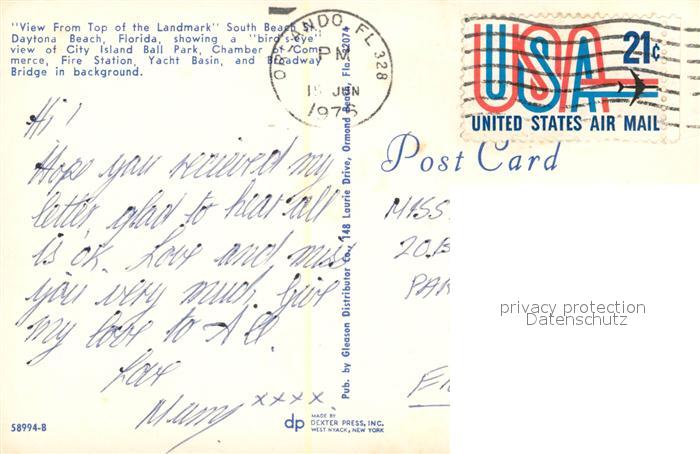 "View From Top of the Landmark" South Beach St.
Daytona Beach, Florida, showing a "bird's-eye"
view of City Island Ball Park, Chamber of Com-
merce, Fire Station, Yacht Basin, and Broadway
Bridge in background.
ORLANDO, FL 328
PM
15 JUN
1976
USA 21c
UNITED STATES AIR MAIL
Post Card
Hi!
Hope you recieved my
letter, glad to hear all
is ok. Love and miss
you very much. Give
my love to All.
Love
Mummy xxxx
MISS
PAR
privacy protection
Datenschutz
Pub. by Gleason Distributor Co., 148 Laurie Drive, Ormond Beach, Fla. 32074
58994-B
dp
MADE BY
DEXTER PRESS, INC.
WEST NYACK, NEW YORK